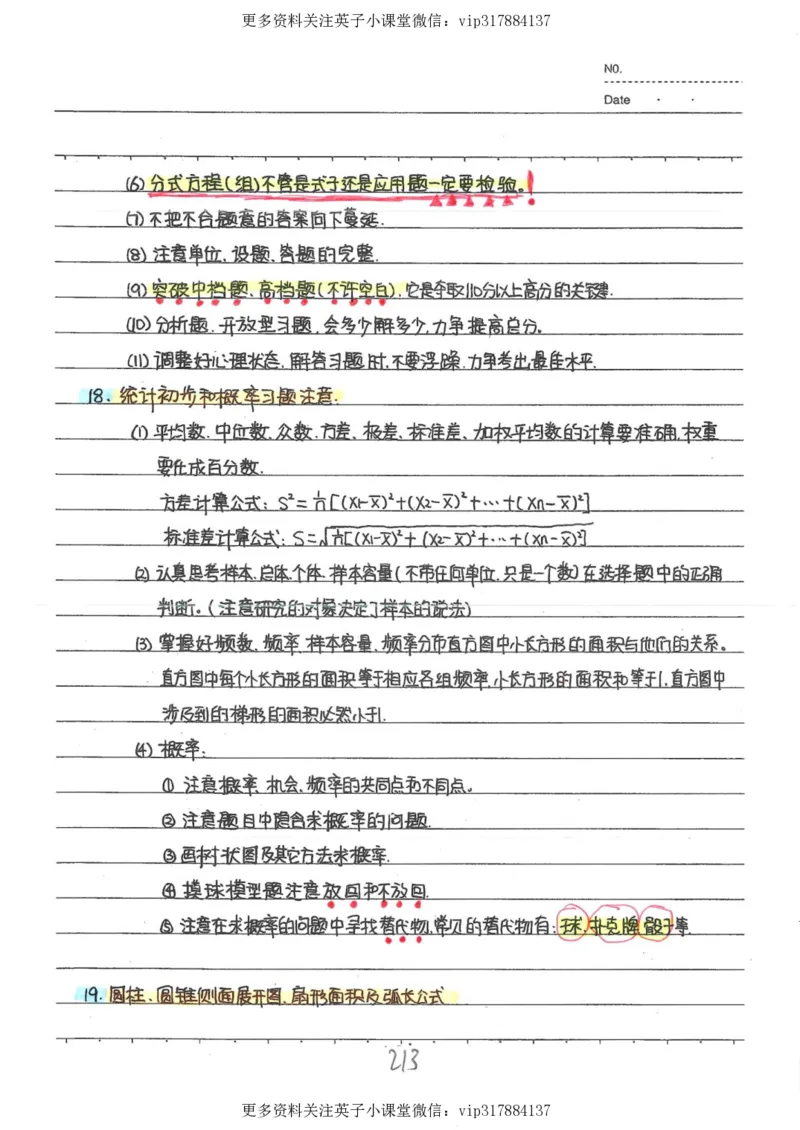 更多资料关注英子小课堂微信：vip317884137
NO.
Date · ·
(6) 分式方程(组)不管是式子还是应用题一定要检验。!
(7) 不把不合题意的答案向下蔓延.
(8) 注意单位、设题、答题的完整.
(9) 突破中档题、高档题(不许空白)，它是夺取110分以上高分的关键.
(10) 分析题．开放型习题，会多少解多少，力争提高总分。
(11) 调整好心理状态，解答习题时，不要浮躁，力争考出最佳水平.
18. 统计初步和概率习题注意.
(1) 平均数、中位数、众数、方差、极差、标准差、加权平均数的计算要准确，权重
要化成百分数.
方差计算公式：S²=1/n[(X₁-X̅)²+(X₂-X̅)²+…+(Xn-X̅)²]
标准差计算公式：S=√1/n[(X₁-X̅)²+(X₂-X̅)²+…+(Xn-X̅)²]
(2) 认真思考样本、总体、个体、样本容量(不带任何单位，只是一个数)在选择题中的正确
判断。(注意研究的对象决定了样本的说法)
(3) 掌握好频数、频率、样本容量、频率分布直方图中小长方形的面积与他们的关系。
直方图中每个小长方形的面积等于相应各组频率，小长方形的面积和等于1，直方图中
涉及到的梯形的面积必然小于1.
(4) 概率：
① 注意概率、机会、频率的共同点和不同点。
② 注意题目中隐含求概率的问题.
③ 画树状图及其它方法求概率.
④ 摸球模型题注意放回和不放回.
⑤ 注意在求概率的问题中寻找替代物，常见的替代物有：球，扑克牌，骰子等.
19. 圆柱、圆锥侧面展开图、扇形面积及弧长公式
213
更多资料关注英子小课堂微信：vip317884137